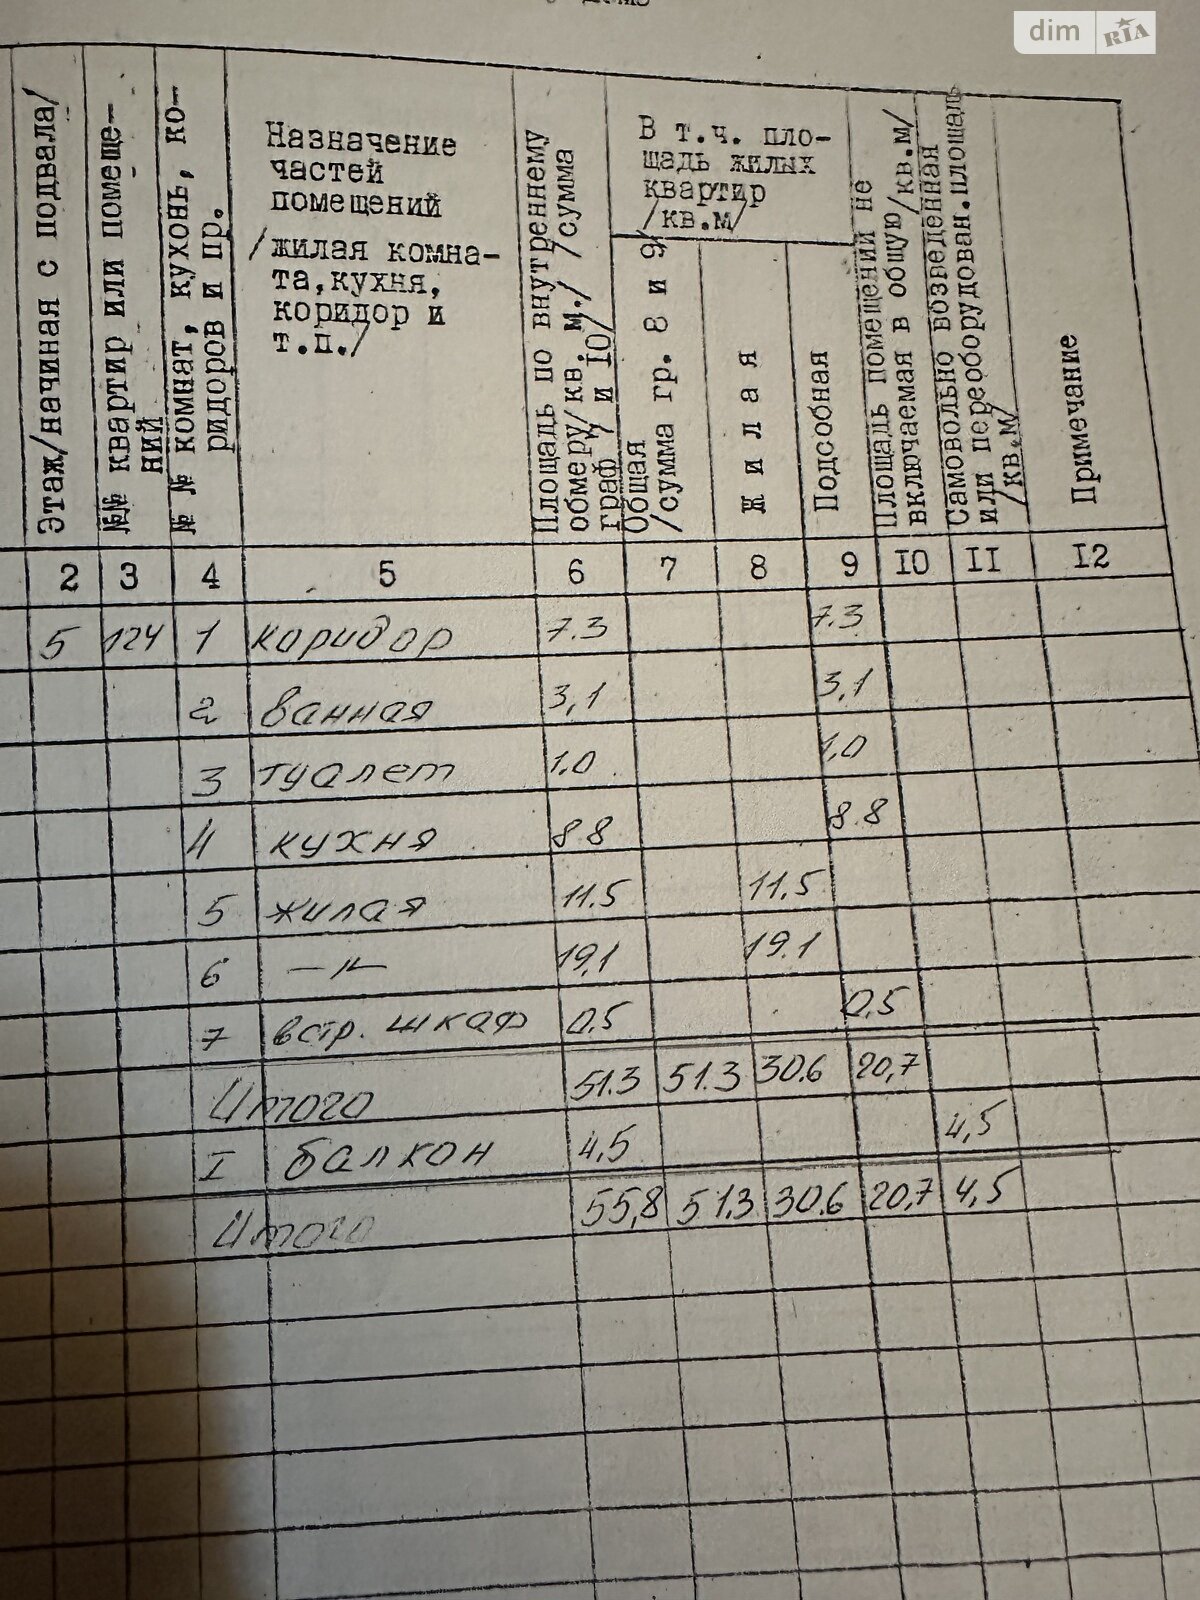 dim RIA
Этаж/начиная с подвала/
№№ квартир или помеще-
ний
№ № комнат, кухонь, ко-
ридоров и пр.
Назначение
частей
помещений
/жилая комна-
та, кухня,
коридор и
т.п./
Площадь по внутреннему
обмеру/кв. м./ /сумма
граф 7 и 10/
В т.ч. пло-
щадь жилых
квартир
/кв.м/
Общая
/сумма гр. 8 и 9/
Жилая
Подсобная
Площадь помещений не
включаемая в общую/кв.м/
Самовольно возведенная
или переоборудован.площадь
/кв.м/
Примечание
2 3 4 5 6 7 8 9 10 11 12
5 124 1 коридор 7.3 7.3
2 ванная 3,1 3,1
3 туалет 1.0 1.0
4 кухня 8.8 8.8
5 жилая 11.5 11.5
6 —"— 19,1 19.1
7 встр. шкаф 0.5 0.5
Итого 51.3 51.3 30.6 20,7
I балкон 4,5 4,5
Итого 55,8 51.3 30.6 20,7 4,5